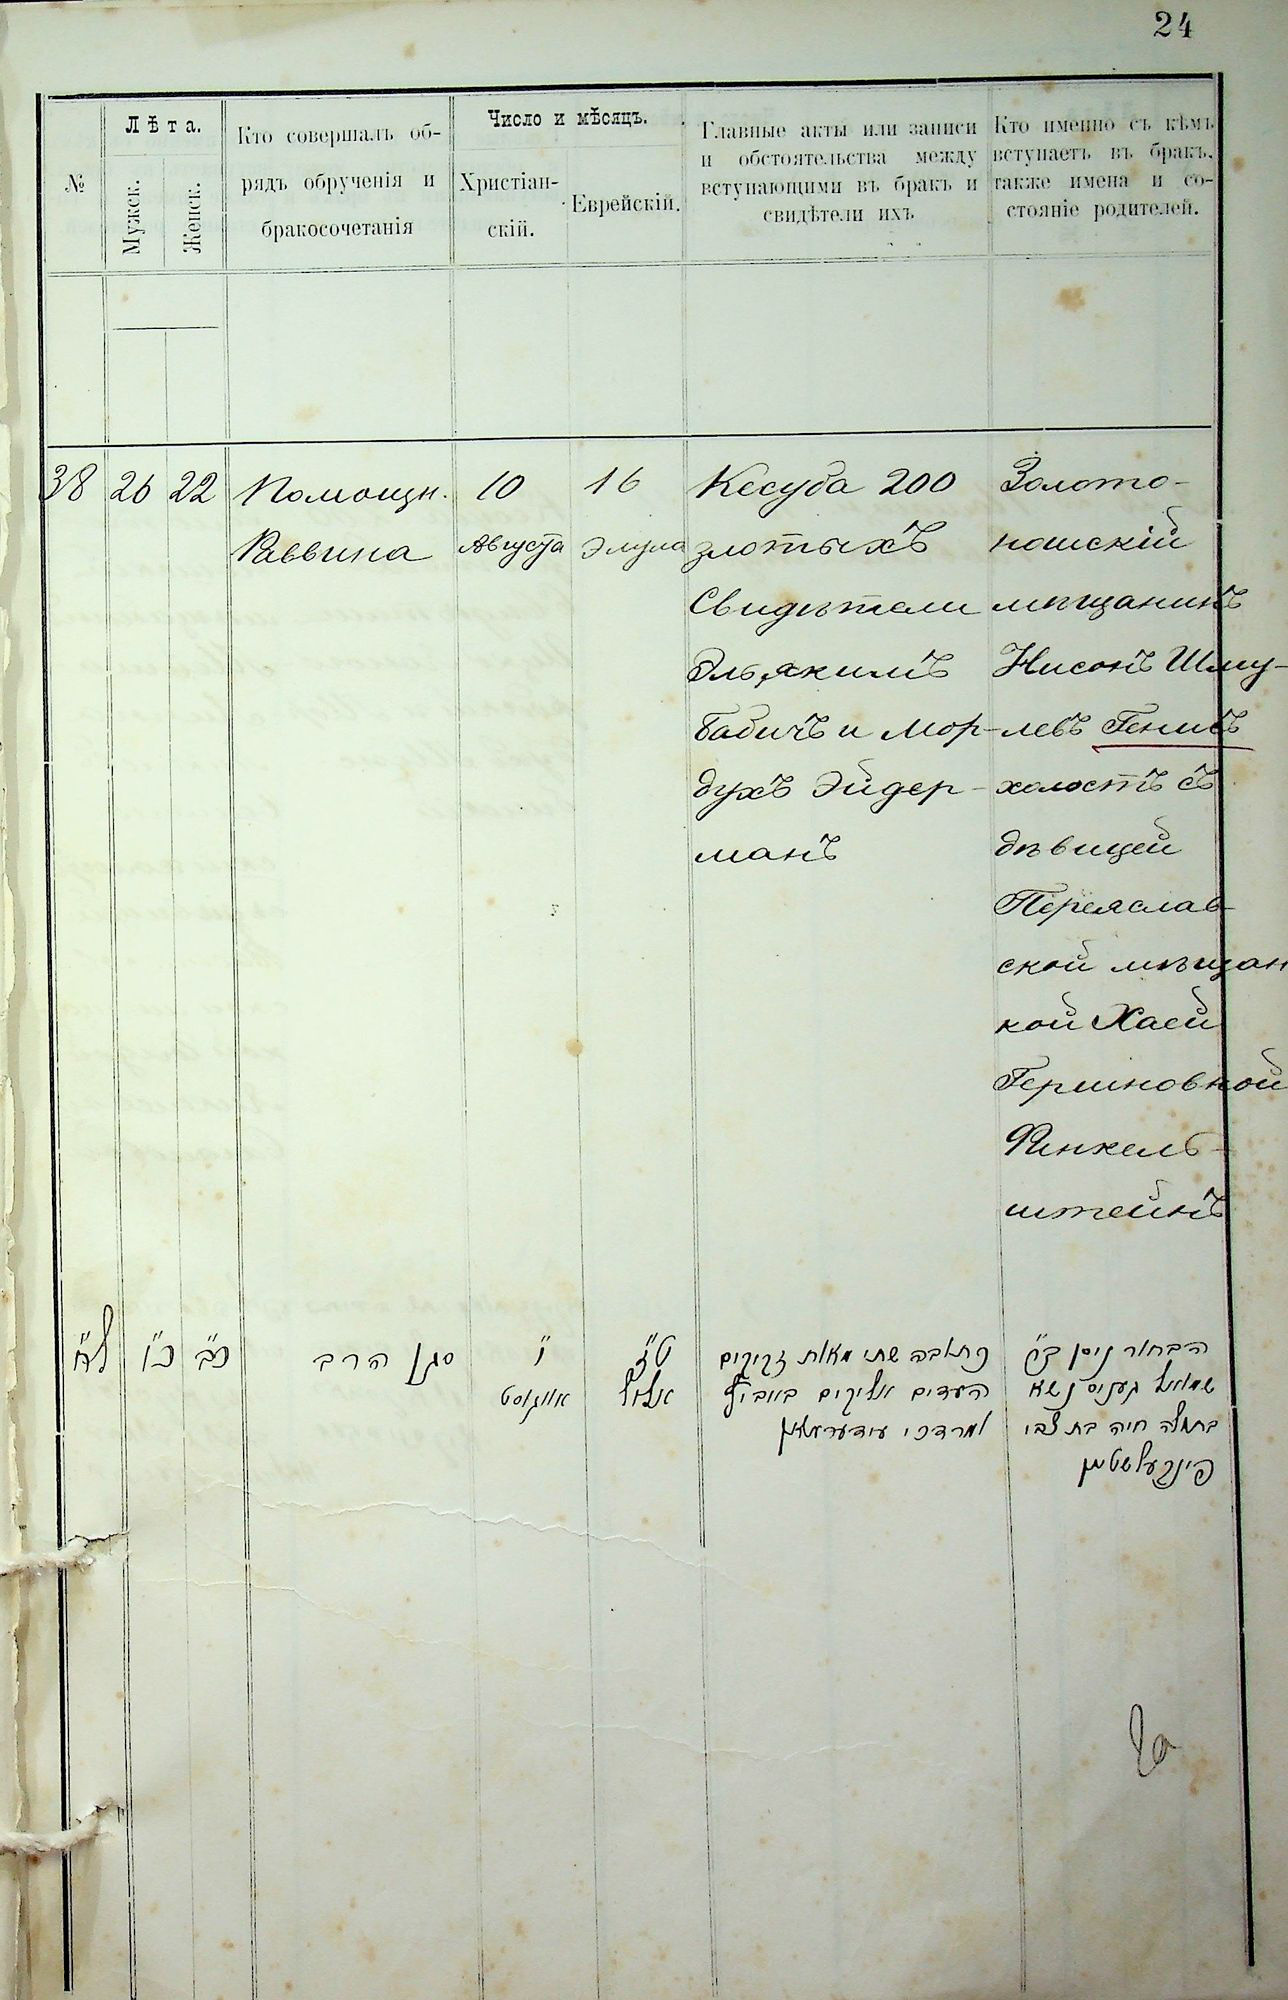 24
№
Лѣта.
Мужск.
Женск.
Кто совершалъ об-
рядъ обрученія и
бракосочетанія
Число и мѣсяцъ.
Христіан-
скій.
Еврейскій.
Главные акты или записи
и обстоятельства между
вступающими въ бракъ и
свидѣтели ихъ
Кто именно съ кѣмъ
вступаетъ въ бракъ,
также имена и со-
стояніе родителей.
38
26
22
Помощн.
Раввина
10
Августа
16
Элула
Кесуба 200
злотыхъ
Свидѣтели
Эльякимъ
Бабичъ и Мор-
духъ Эйдер-
манъ
Золото-
ношскій
мѣщанинъ
Нисонъ Шму-
левъ Генисъ
холостъ съ
дѣвицей
Переяслав-
ской мѣщан
кой Хаей
Гершновной
Финкель-
штейнъ
ל"ח
כ"ו
כ"ב
סגן הרב
י'
אווגוסט
ט"ז
אלול
כתובה שתי מאות זקוקים
העדים אליקים באביץ
ומרדכי עידערמאן
הבחור ניסן ב"ר
שמואל געניס נשא
בתולה חיה בת צבי
פינקעלשטיין